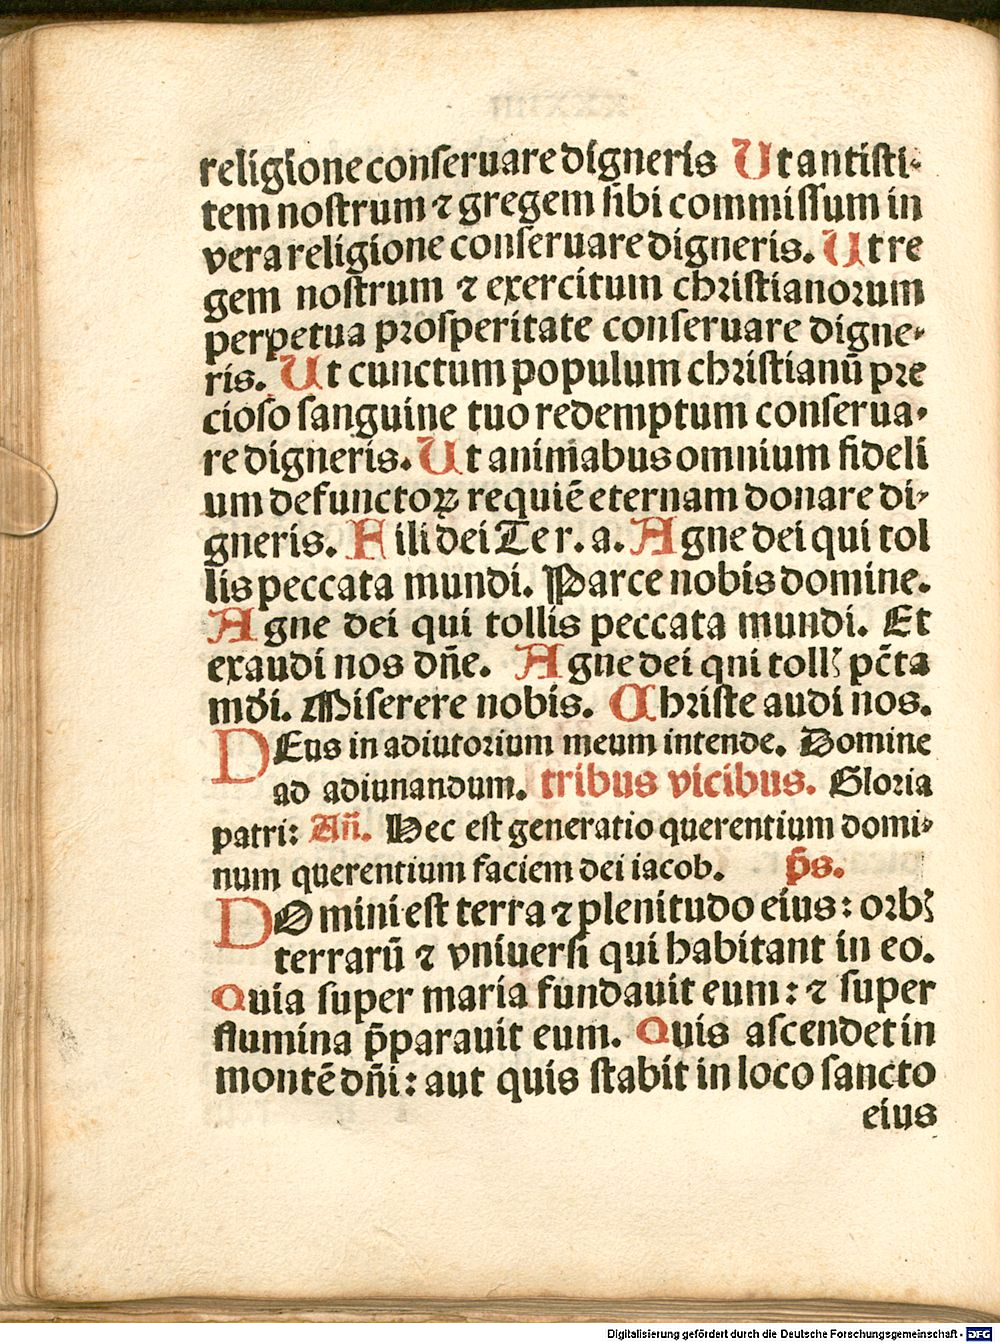 religione conſeruare digneris Ut antiſti-
tem noſtrum ⁊ gregem ſibi commiſſum in
vera religione conſeruare digneris. Ut re
gem noſtrum ⁊ exercitum chꝛiſtianoꝛum
perpetua proſperitate conſeruare digne-
ris. Ut cunctum populum chꝛiſtianū pꝛe
cioſo ſanguine tuo redemptum conſerua-
re digneris. Ut animabus omnium fideli
um defunctoꝝ requiē eternam donare di-
gneris. Fili dei Ter. a. Agne dei qui tol
lis peccata mundi. Parce nobis domine.
Agne dei qui tollis peccata mundi. Et
exaudi nos dñe. Agne dei qni tollꝭ pc̄ta
mūdi. Miſerere nobis. Chꝛiſte audi nos.
DEus in adiutoꝛium meum intende. Domine
ad adiunandum. tribus vicibus. Gloꝛia
patri: Añ. Hec eſt generatio querentium domi-
num querentium faciem dei iacob. p̄s.
DOmini eſt terra ⁊ plenitudo eius: oꝛbꝭ
terrarū ⁊ vniuerſi qui habitant in eo.
Quia ſuper maria fundauit eum: ⁊ ſuper
flumina p̄parauit eum. Quis aſcendet in
montē dñi: aut quis ſtabit in loco ſancto
eius
Digitalisierung gefördert durch die Deutsche Forschungsgemeinschaft - DFG